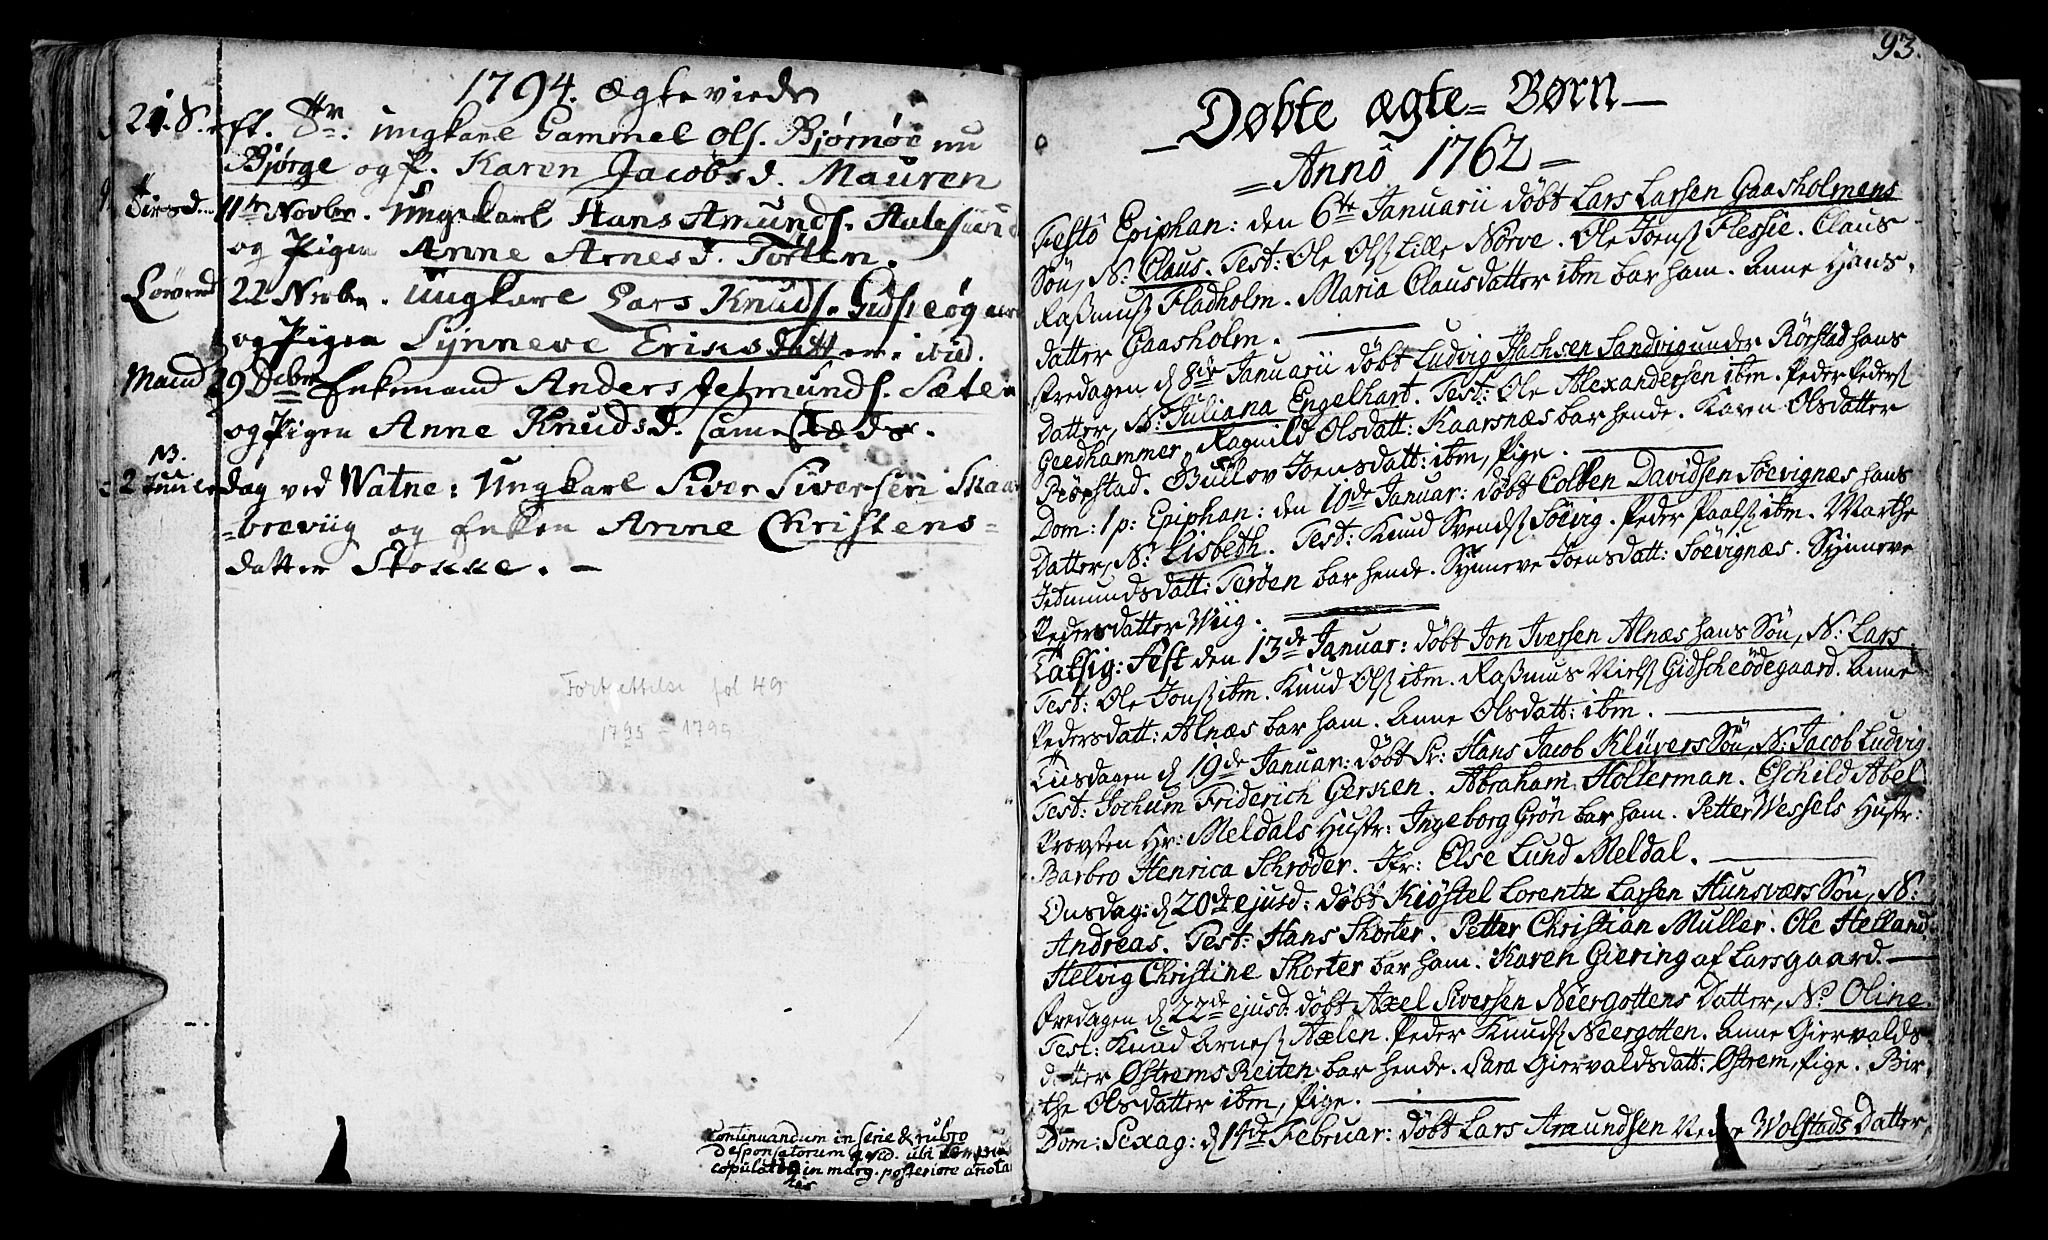 1794. Ægteviede
21. S. eft. Tr. Ungkarl Gammel Ols. Bjørnøe nu
Bjørge og P. Karen Jacobsd. Mauren
Tirsd. 11te Novbr. Ungekarl Hans Amunds. Aalesund
og Pigen Anne Arnesd.
Løverd 22 Novbr. Ungkarl Lars Knuds. Gidskeøg
og Pigen Synneve Eriksdatter. ibid.
Mand 29 Dcbr Enkemand Anders Jetmunds. Sæter
og Pigen Anne Knudsd. samestæds.
N3.
2 Juuledag ved Watne: Ungkarl Siver Siversen Skaar
=breviig og Enken Anne Christens=
datter Stokke. —
Fortsettelse fol 49
1795 - 1799
Continuandum in serie & rubro
Desponsatorum qvid. ubi
copulat in marg. posteriore anota
93.
— Døbte ægte= Børn —
= Anno 1762 =
Festo Epiphan: den 6te Januarii döbt Lars Larsen Gaasholmens
Sön, N: Claus. Test: Ole Olsß Lille Nörve. Ole Joensß Flessie. Claus
Raßmusß Fladholm. Maria Clausdatter ibm bar ham. Anne Hans-
datter Gaasholm. —
Fredagen d 8de Januarii döbt Ludvig Sandvig under Rörstad hans
Datter, N: Juliana Engelhart. Test: Ole Alexandersen ibm. Peder Pedersß
Geedhammer. Ragnild Olsdatt: Kaarsnæs bar hende. Karen Olsdatter
Rörstad. Gullov Joensdatt: ibm, Pige. —
Dom: 1 p: Epiphan: den 10de Januar: döbt Colben Davidsen Soevignæs hans
Datter, N: Lisbeth. Test: Knud Svendsß Soevig. Peder Paalsß ibm. Marthe
Jetmundsdatt: Teröen bar hende. Synneve Joensdatt: Soevignæs. Synneve
Pedersdatter Wiig. —
Taksig: Fest den 13de Januar: döbt Jon Iversen Alnæs hans Sön, N: Lars
Test: Ole Jonsß ibm. Knud Olsß ibm. Raßmus Nielsß Gidscheödegaard. Anne
Pedersdatt: Alnæs bar ham. Anne Olsdatt: ibm. —
Tiisdagen d 19de Januar: döbt Sr: Hans Jacob Klüvers Sön, N: Jacob Ludvig
Test: Jochum Friderich Gerken. Abraham Hollerman. Eschild Abel
Provsten Hr: Meldals Hustr: Ingeborg Grön bar ham. Petter Wessels Hustr:
Barbro Henrica Schrøder. Jfr: Else Lund Meldal. —
Onsdag: d 20de ejusd: döbt Kiöstel Lorentz Lassen Hunsværs Sön, N:
Andreas. Test: Hans Skorter. Petter Christian Muller. Ole Hetland
Helvig Christine Skorter bar ham. Karen Giering af Larsgaard. —
Fredagen d 22de ejusd: döbt Axel Siversen Neergottens Datter, N: Oline.
Test: Knud Arnesß Axlen. Peder Knudsß Neergotten. Anne Giervalds-
datter Østrems Reiten bar hende. Sara Giervaldsdatt: Østrem, Pige. Bir-
the Olsdatter ibm, Pige. —
Dom: Sexag: d 14de Februar: döbt Lars Amundsen Wolstads Datter,